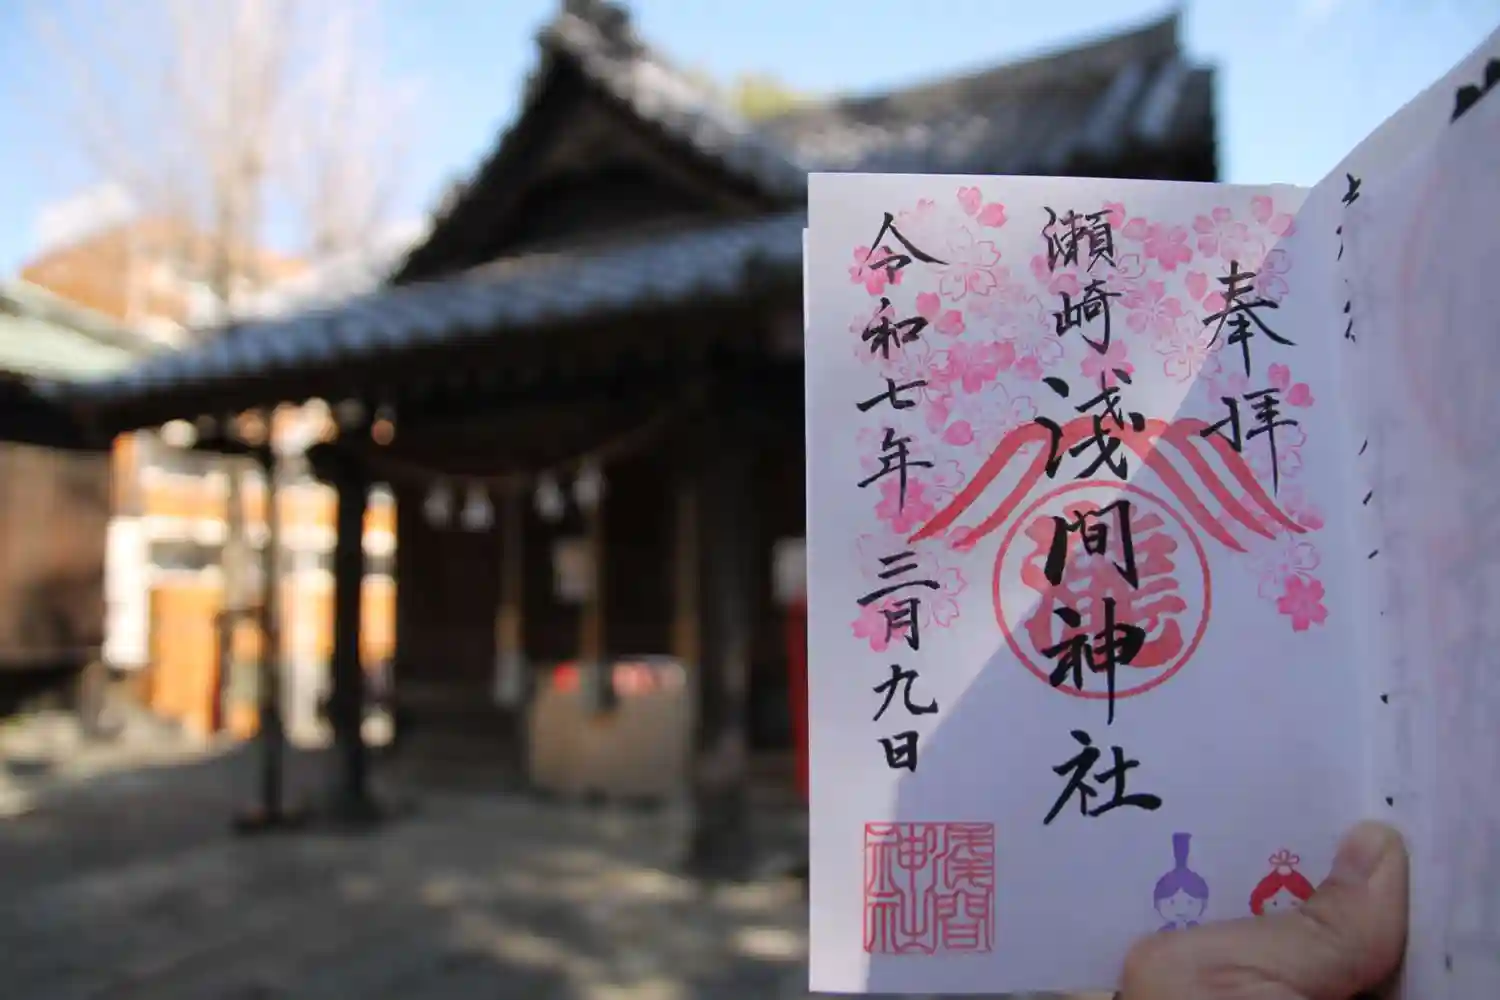 奉拝
瀬崎
浅間神社
令和七年三月九日
浅間
神社